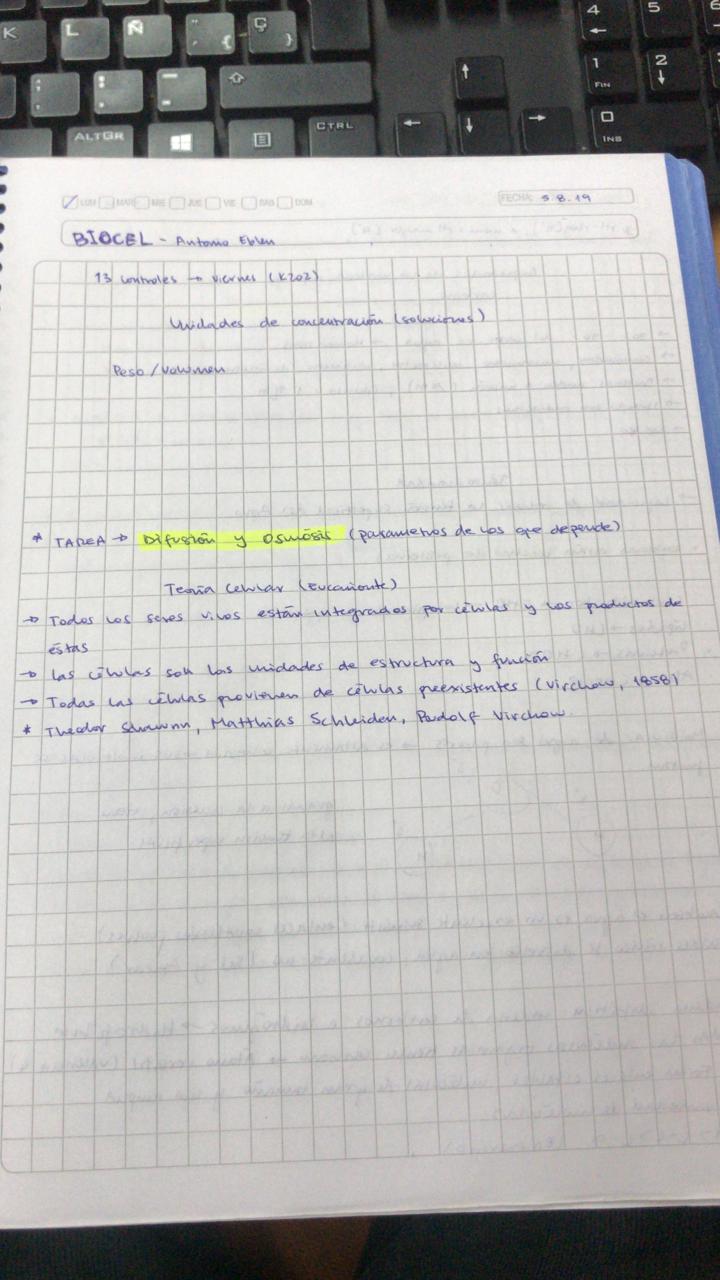 K L Ñ ¨ ´ { Ç }
4 ← 5 6
; , : . _ -
⇧ ↑ 1 FIN 2 ↓
ALTGR CTRL ← ↓ → 0 INS
LUN MAR MIE JUE VIE SAB DOM FECHA: 5.8.19
BIOCEL - Antonio Eblen
13 controles → viernes (K202)
Unidades de concentración (soluciones)
Peso/Volumen
* TAREA → Difusión y Osmósis (parámetros de los que depende)
Teoría Celular (eucarionte)
→ Todos los seres vivos están integrados por células y los productos de
éstas
→ Las células son las unidades de estructura y función
→ Todas las células provienen de células preexistentes (Virchow, 1858)
* Theodor Schwann, Matthias Schleiden, Rudolf Virchow.